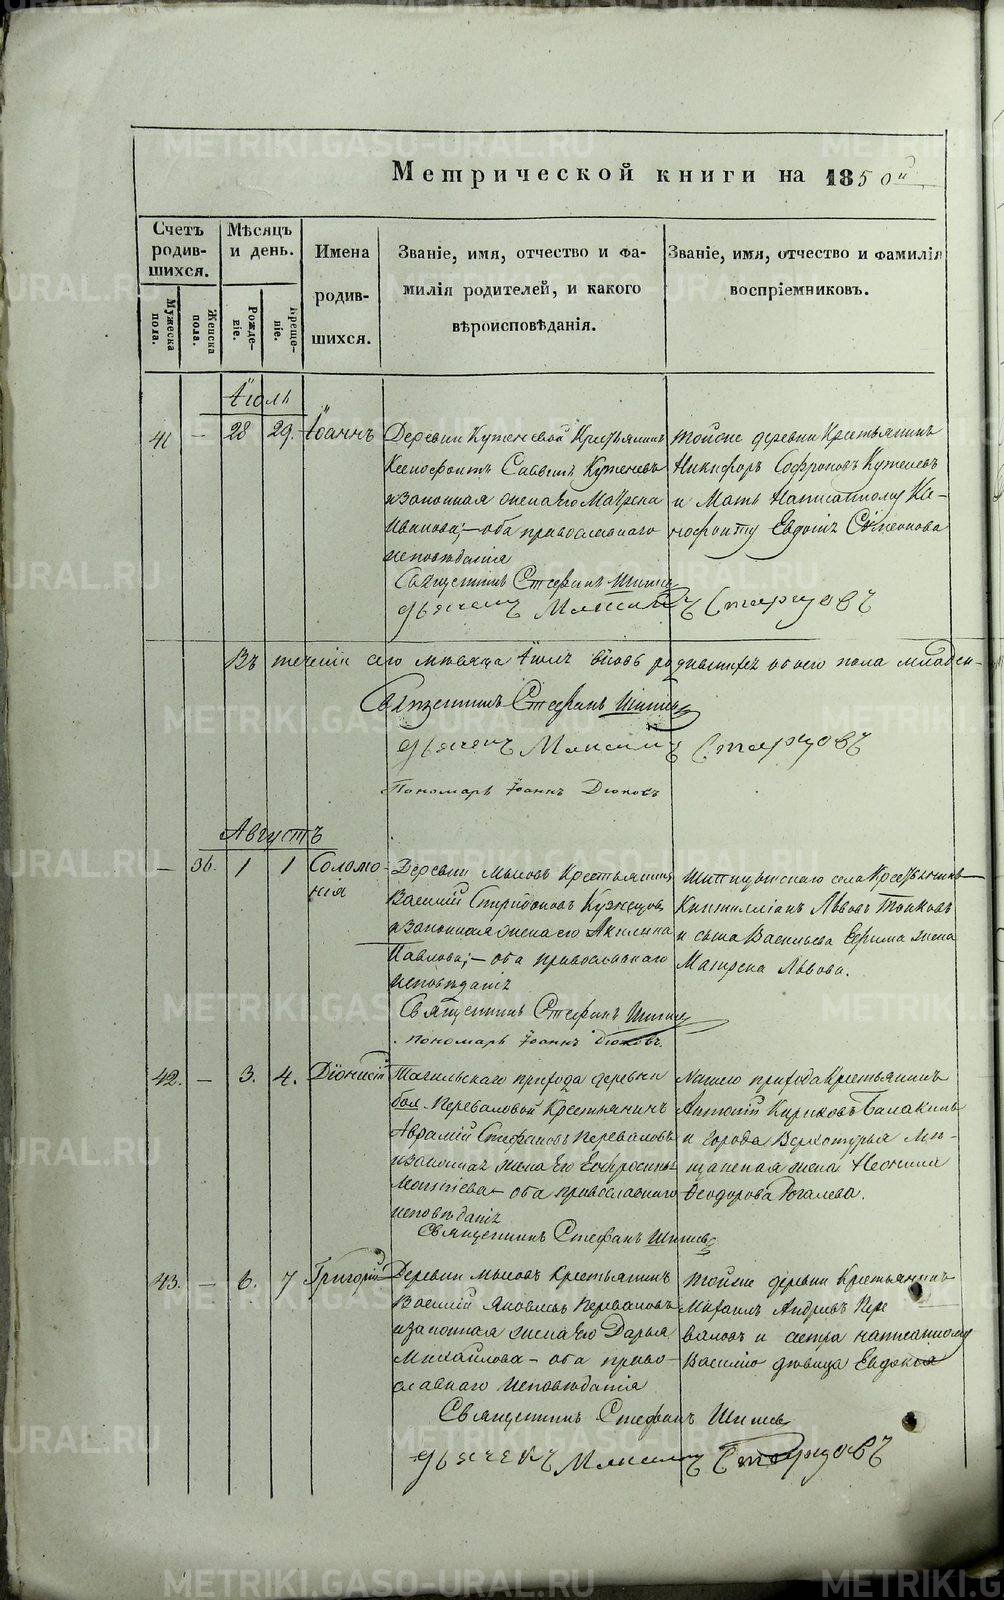 Метрической книги на 1850й
Счетъ родившихся.
Мѣсяцъ и день.
Имена родившихся.
Званіе, имя, отчество и фамилія родителей, и какого вѣроисповѣданія.
Званіе, имя, отчество и фамилія воспріемниковъ.
Мужеска пола.
Женска пола.
Рожденіе.
Крещеніе.
Іюль
41 – 28 29. Іоаннъ
Деревни Куженевой Крестьянинъ
Ксенофонтъ Саввинъ
и законная жена его Матрена
Иванова; – оба православнаго
исповѣданія
Тойже деревни Крестьянинъ
Никифоръ Софроновъ
и Мать написанному Ксе-
нофонту Евдокія Симеонова
Священникъ Стефанъ
дьячекъ Максимъ Старцовъ
Въ теченіи сего мѣсяца Іюля всѣхъ родившихся обоего пола младен-
Священникъ Стефанъ
дьячекъ Максимъ Старцовъ
Пономарь Іоаннъ Дюковъ
Августъ
– 36. 1 1 Соломо-
нія
Деревни Мысовъ Крестьянинъ
Василій Спиридоновъ Кузнецовъ
и законная жена его Акилина
Павлова; – оба православнаго
исповѣданія
села Крестьянинъ
Львовъ
и сына Васильева Ефрема жена
Матрена Львова.
Священникъ Стефанъ
пономарь Іоаннъ Дюковъ.
42. – 3. 4. Діонисій
Тагильскаго прихода деревни
бол. Переваловой Крестьянинъ
Аврамій Стефановъ Переваловъ
и законная жена его Евфросинья
оба православнаго
исповѣданія
Нашего прихода Крестьянинъ
Антоній Кириковъ Балакинъ
и города Верхотурья Мѣ-
щанская жена Неонила
Ѳеодорова
Священникъ Стефанъ
43. – 6. 7 Григорій
Деревни Мысовъ Крестьянинъ
Василій Яковлевъ Переваловъ
и законная жена его Дарья
Михайлова – оба право-
славнаго исповѣданія
Тойже деревни Крестьянинъ
Михаилъ Андреевъ Пере
валовъ и сестра написанному
Василію дѣвица Евдокія
Священникъ Стефанъ
дьячекъ Максимъ Старцовъ
METRIKI.GASO-URAL.RU